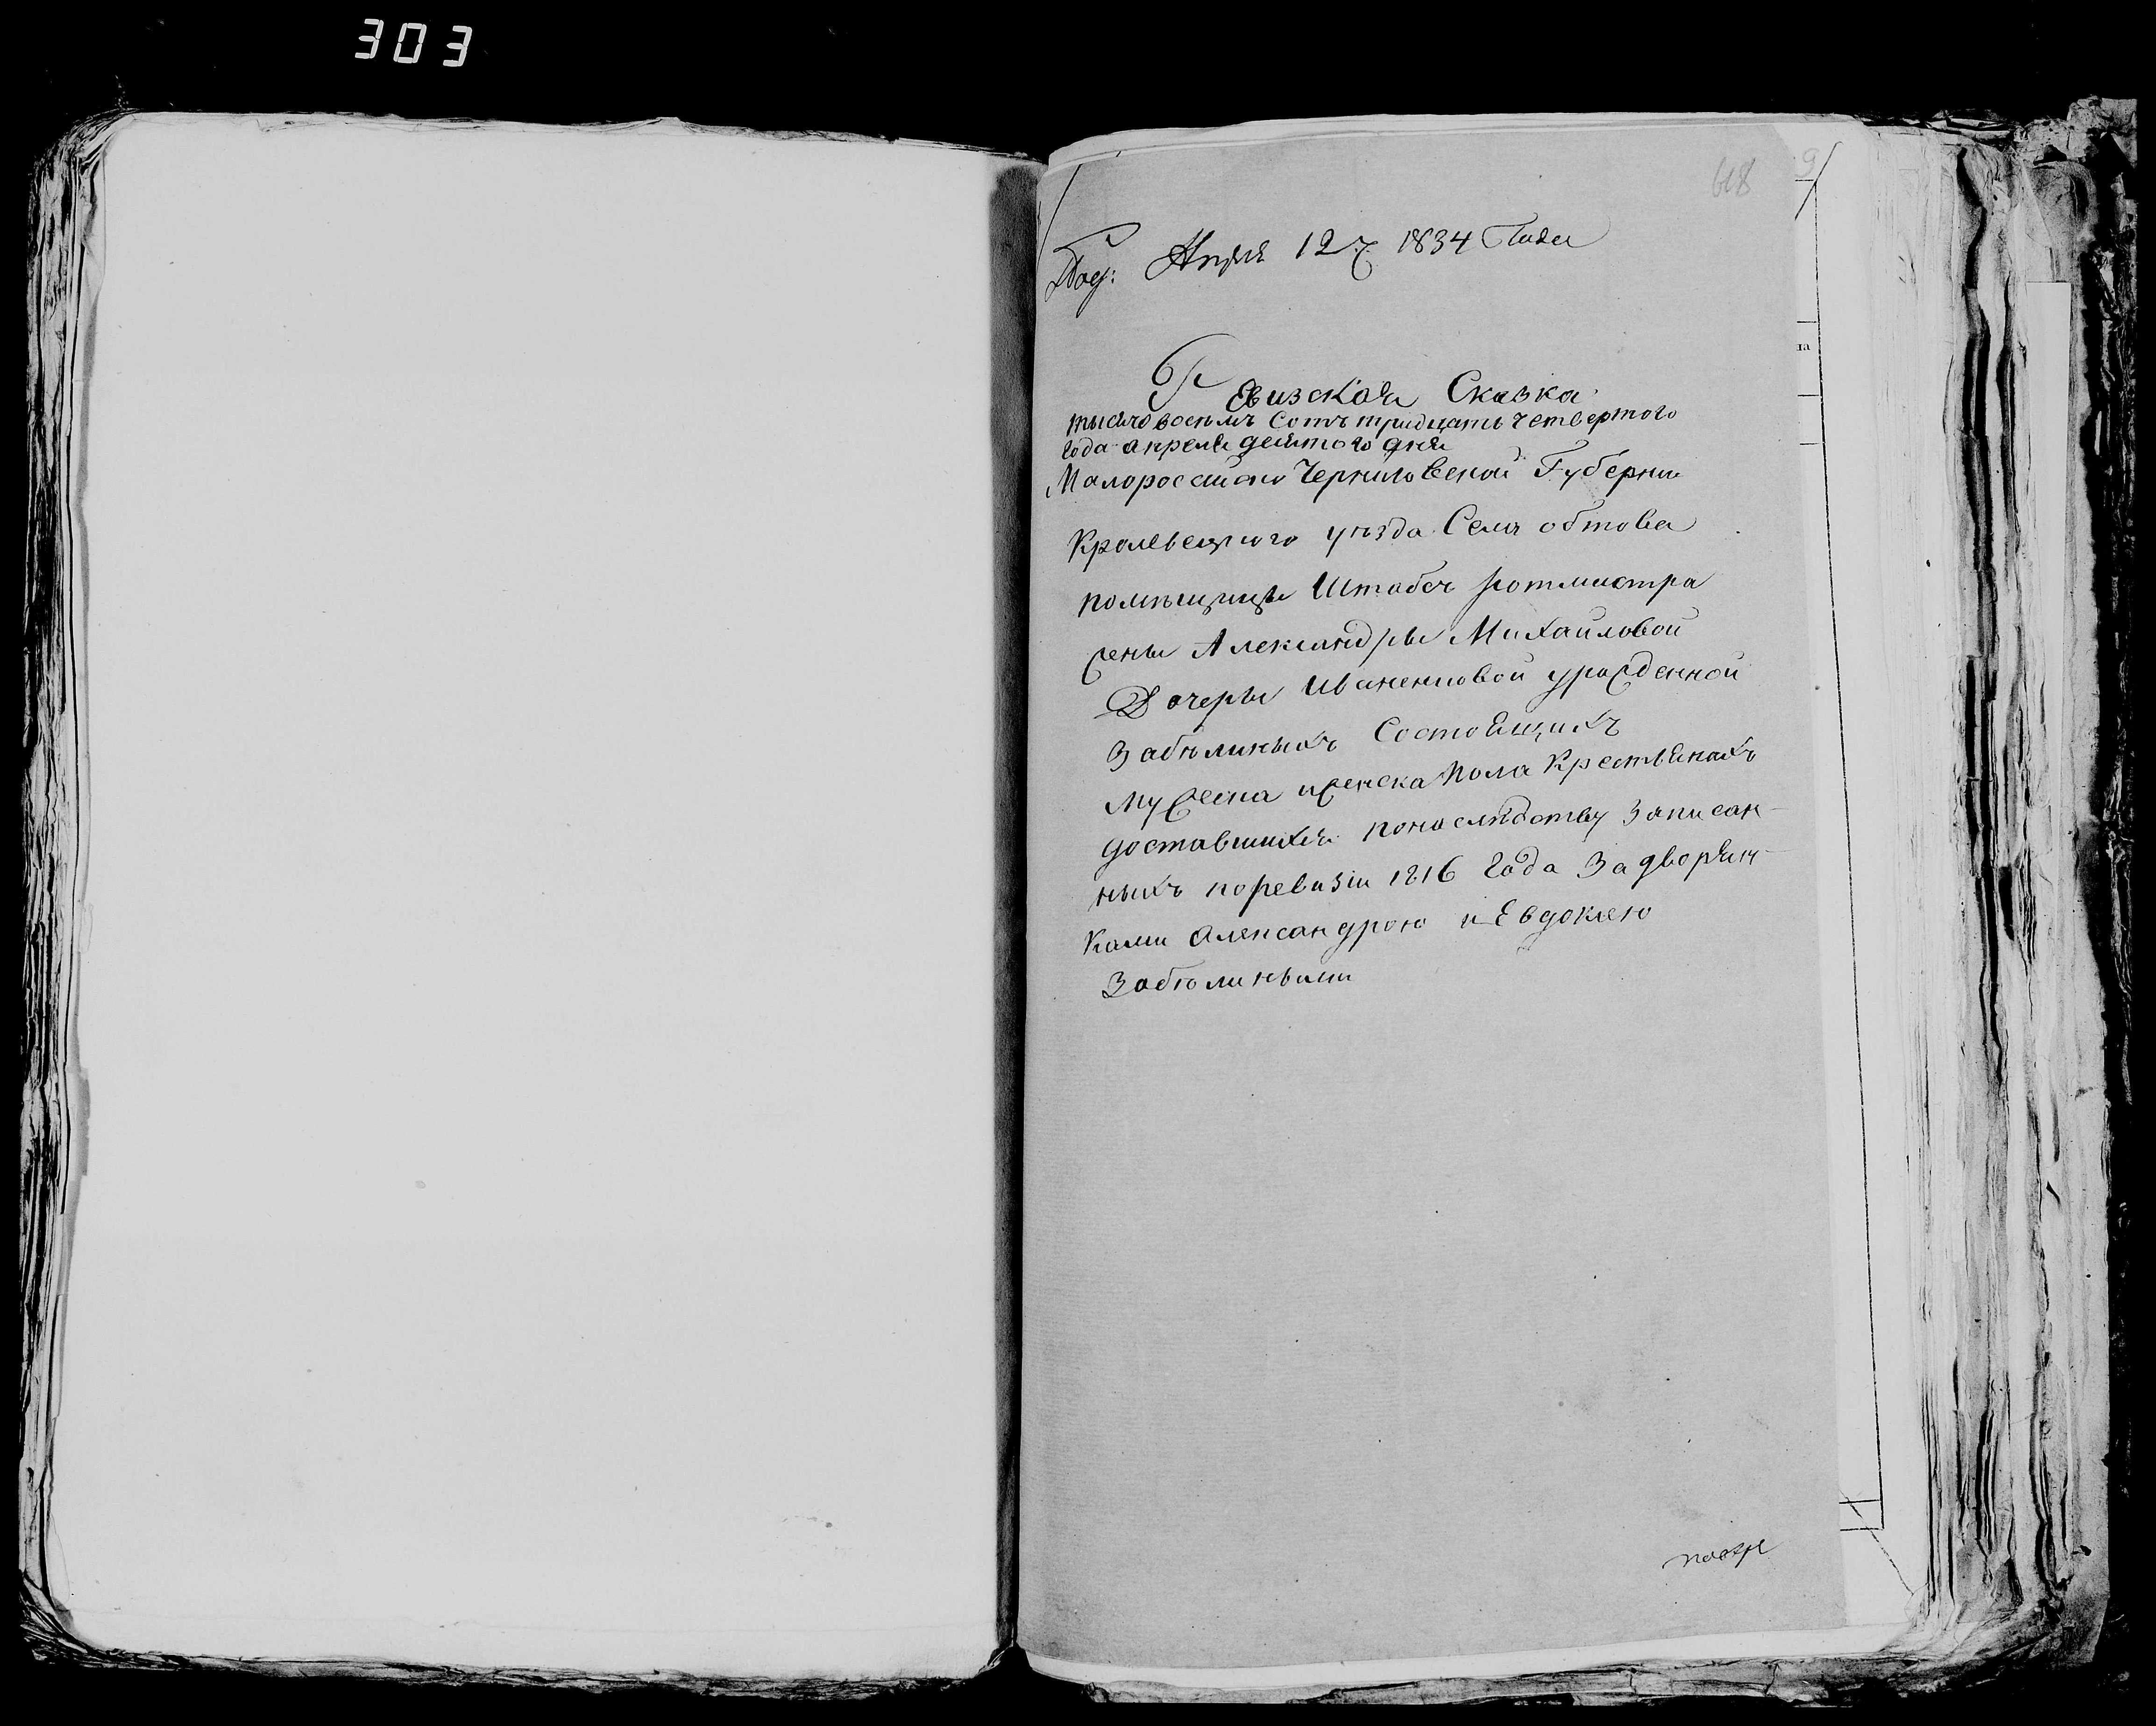 303
618
9
Апреля 12 ч 1834 Года
Ревизская Сказка
тысячо восемъ Сотъ тридцать четвертого
Года апреля десятого дня
Малороссийско Черниговской Губернии
Кролевецкого уезда Села обтова
помещицы Штабсъ ротмистра
жены Александры Михайловой
Дочеры Иваненковой урожденной
Забелиныхъ Состоящихъ
мужеска иженска пола Крестьянахъ
доставшихся понаследству Записан-
ныхъ поревизiи 1816 Года Задворян-
Ками Александрою и Евдокиею
Забелиными
ла